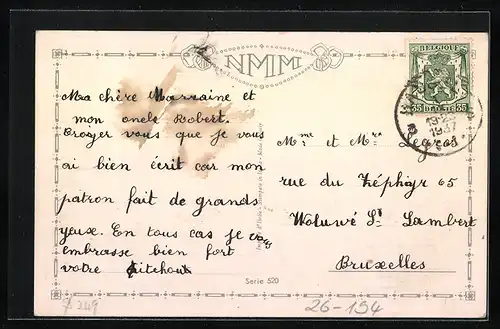 NMM
BELGIQUE
35 BELGIE 35
1937
Ma chère Marraine et
mon oncle Robert.
Croyez vous que je vous
ai bien écrit car mon
patron fait de grands
yeux. En tous cas je vous
embrasse bien fort
votre
Mme et Mr Legros
rue du Zéphyr 65
Woluwé St Lambert
Bruxelles
Serie 520
26-154